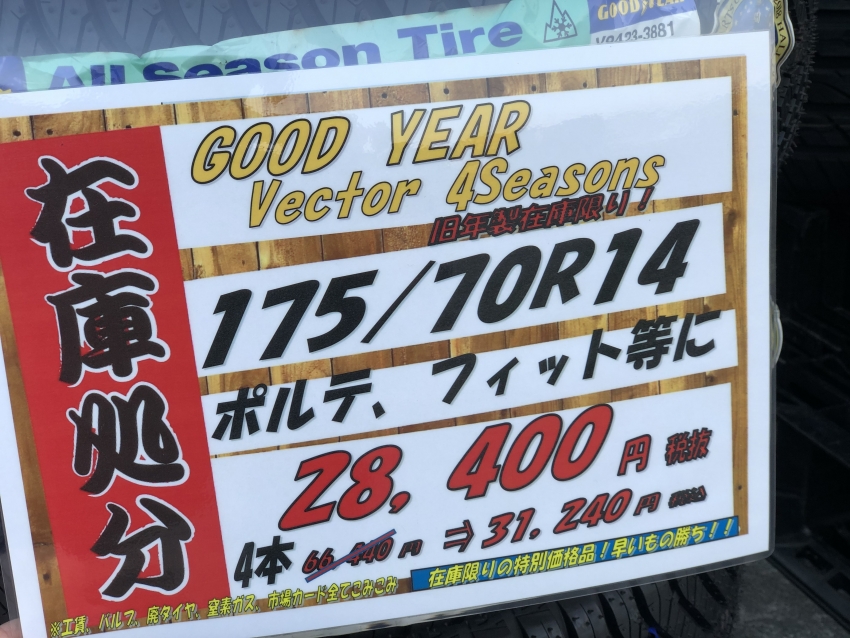 All Season Tire
GOODYEAR
V9423-3881
在庫処分
GOOD YEAR
Vector 4Seasons
旧年製在庫限り!
175/70R14
ポルテ、フィット等に
28,400円 税抜
4本 66,440円 ⇒ 31,240円 税込
在庫限りの特別価格品!早いもの勝ち!!
※工賃、バルブ、廃タイヤ、窒素ガス、市場カード全てこみこみ